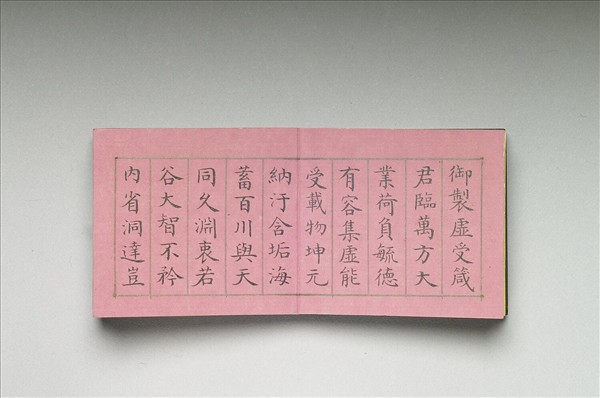 御製虛受箴
君臨萬方大
業荷負毓德
有容集虛能
受載物坤元
納汙含垢海
蓄百川與天
同久淵衷若
谷大智不矜
內省洞達豈